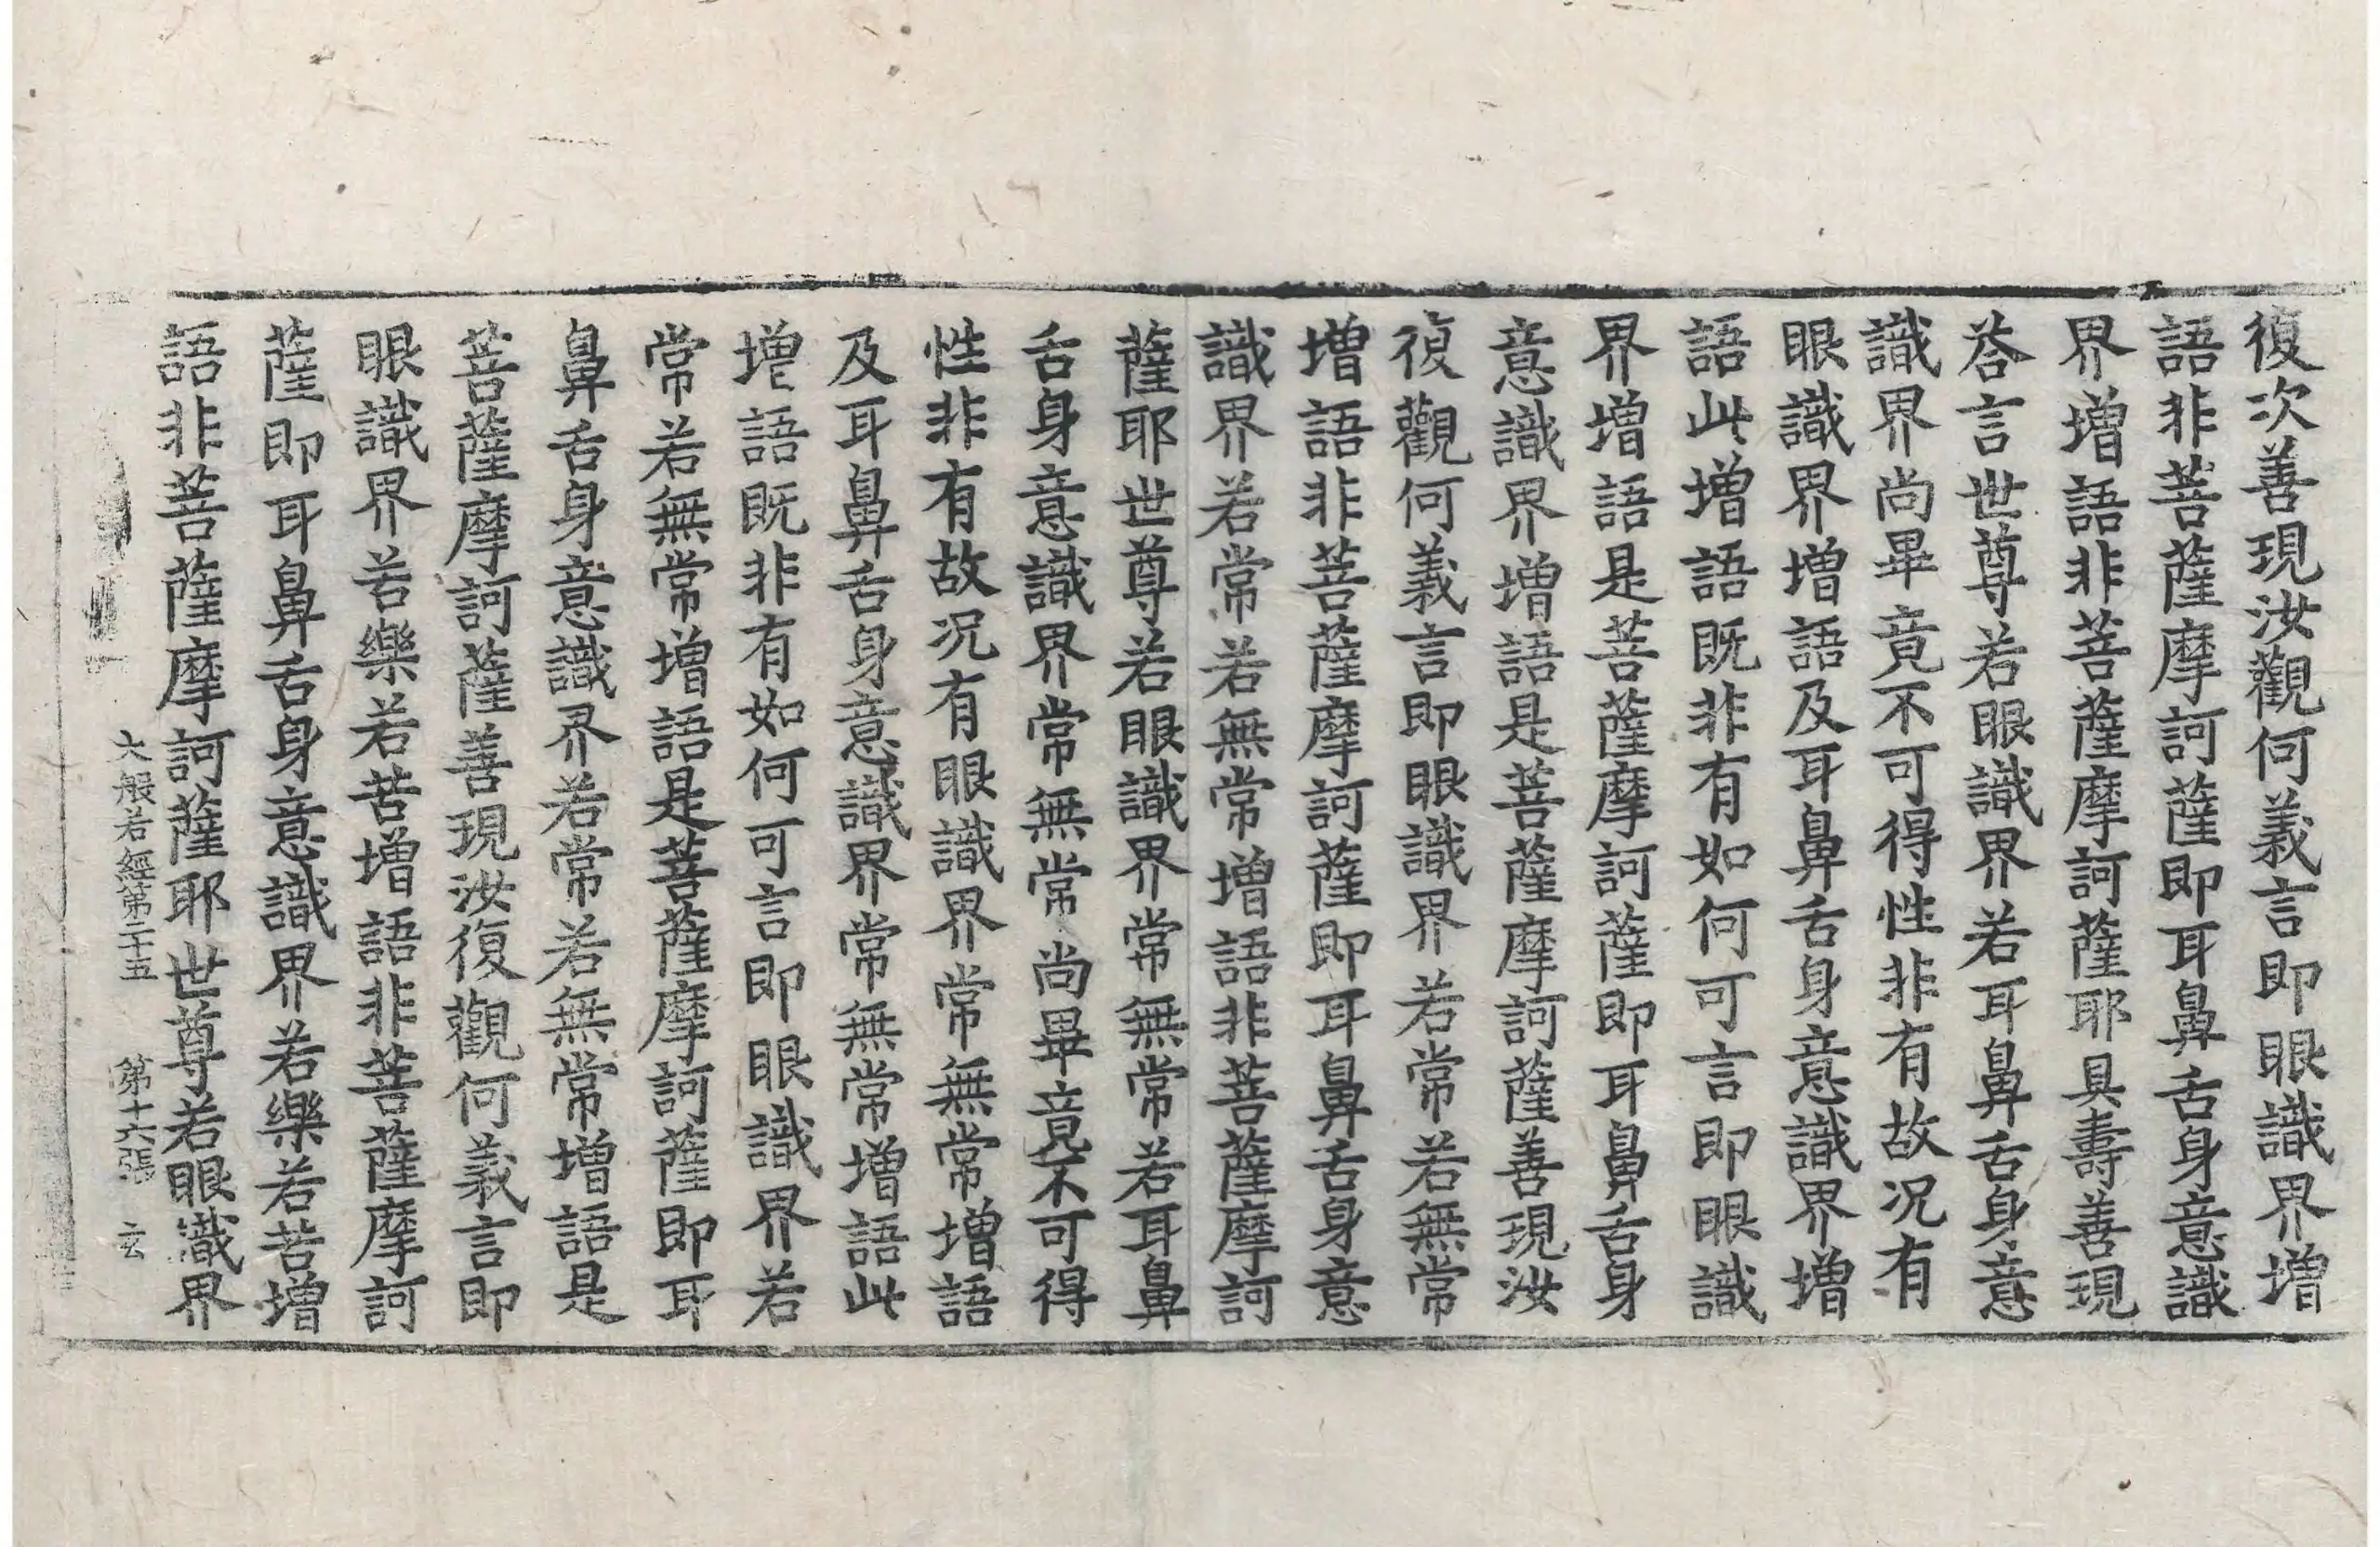 復次善現汝觀何義言即眼識界增
語非菩薩摩訶薩即耳鼻舌身意識
界增語非菩薩摩訶薩耶具壽善現
荅言世尊若眼識界若耳鼻舌身意
識界尚畢竟不可得性非有故況有
眼識界增語及耳鼻舌身意識界增
語此增語既非有如何可言即眼識
界增語是菩薩摩訶薩即耳鼻舌身
意識界增語是菩薩摩訶薩善現汝
復觀何義言即眼識界若常若無常
增語非菩薩摩訶薩即耳鼻舌身意
識界若常若無常增語非菩薩摩訶
薩耶世尊若眼識界常無常若耳鼻
舌身意識界常無常尚畢竟不可得
性非有故況有眼識界常無常增語
及耳鼻舌身意識界常無常增語此
增語既非有如何可言即眼識界若
常若無常增語是菩薩摩訶薩即耳
鼻舌身意識界若常若無常增語是
菩薩摩訶薩善現汝復觀何義言即
眼識界若樂若苦增語非菩薩摩訶
薩即耳鼻舌身意識界若樂若苦增
語非菩薩摩訶薩耶世尊若眼識界
大般若經第二十五 第十六張 玄